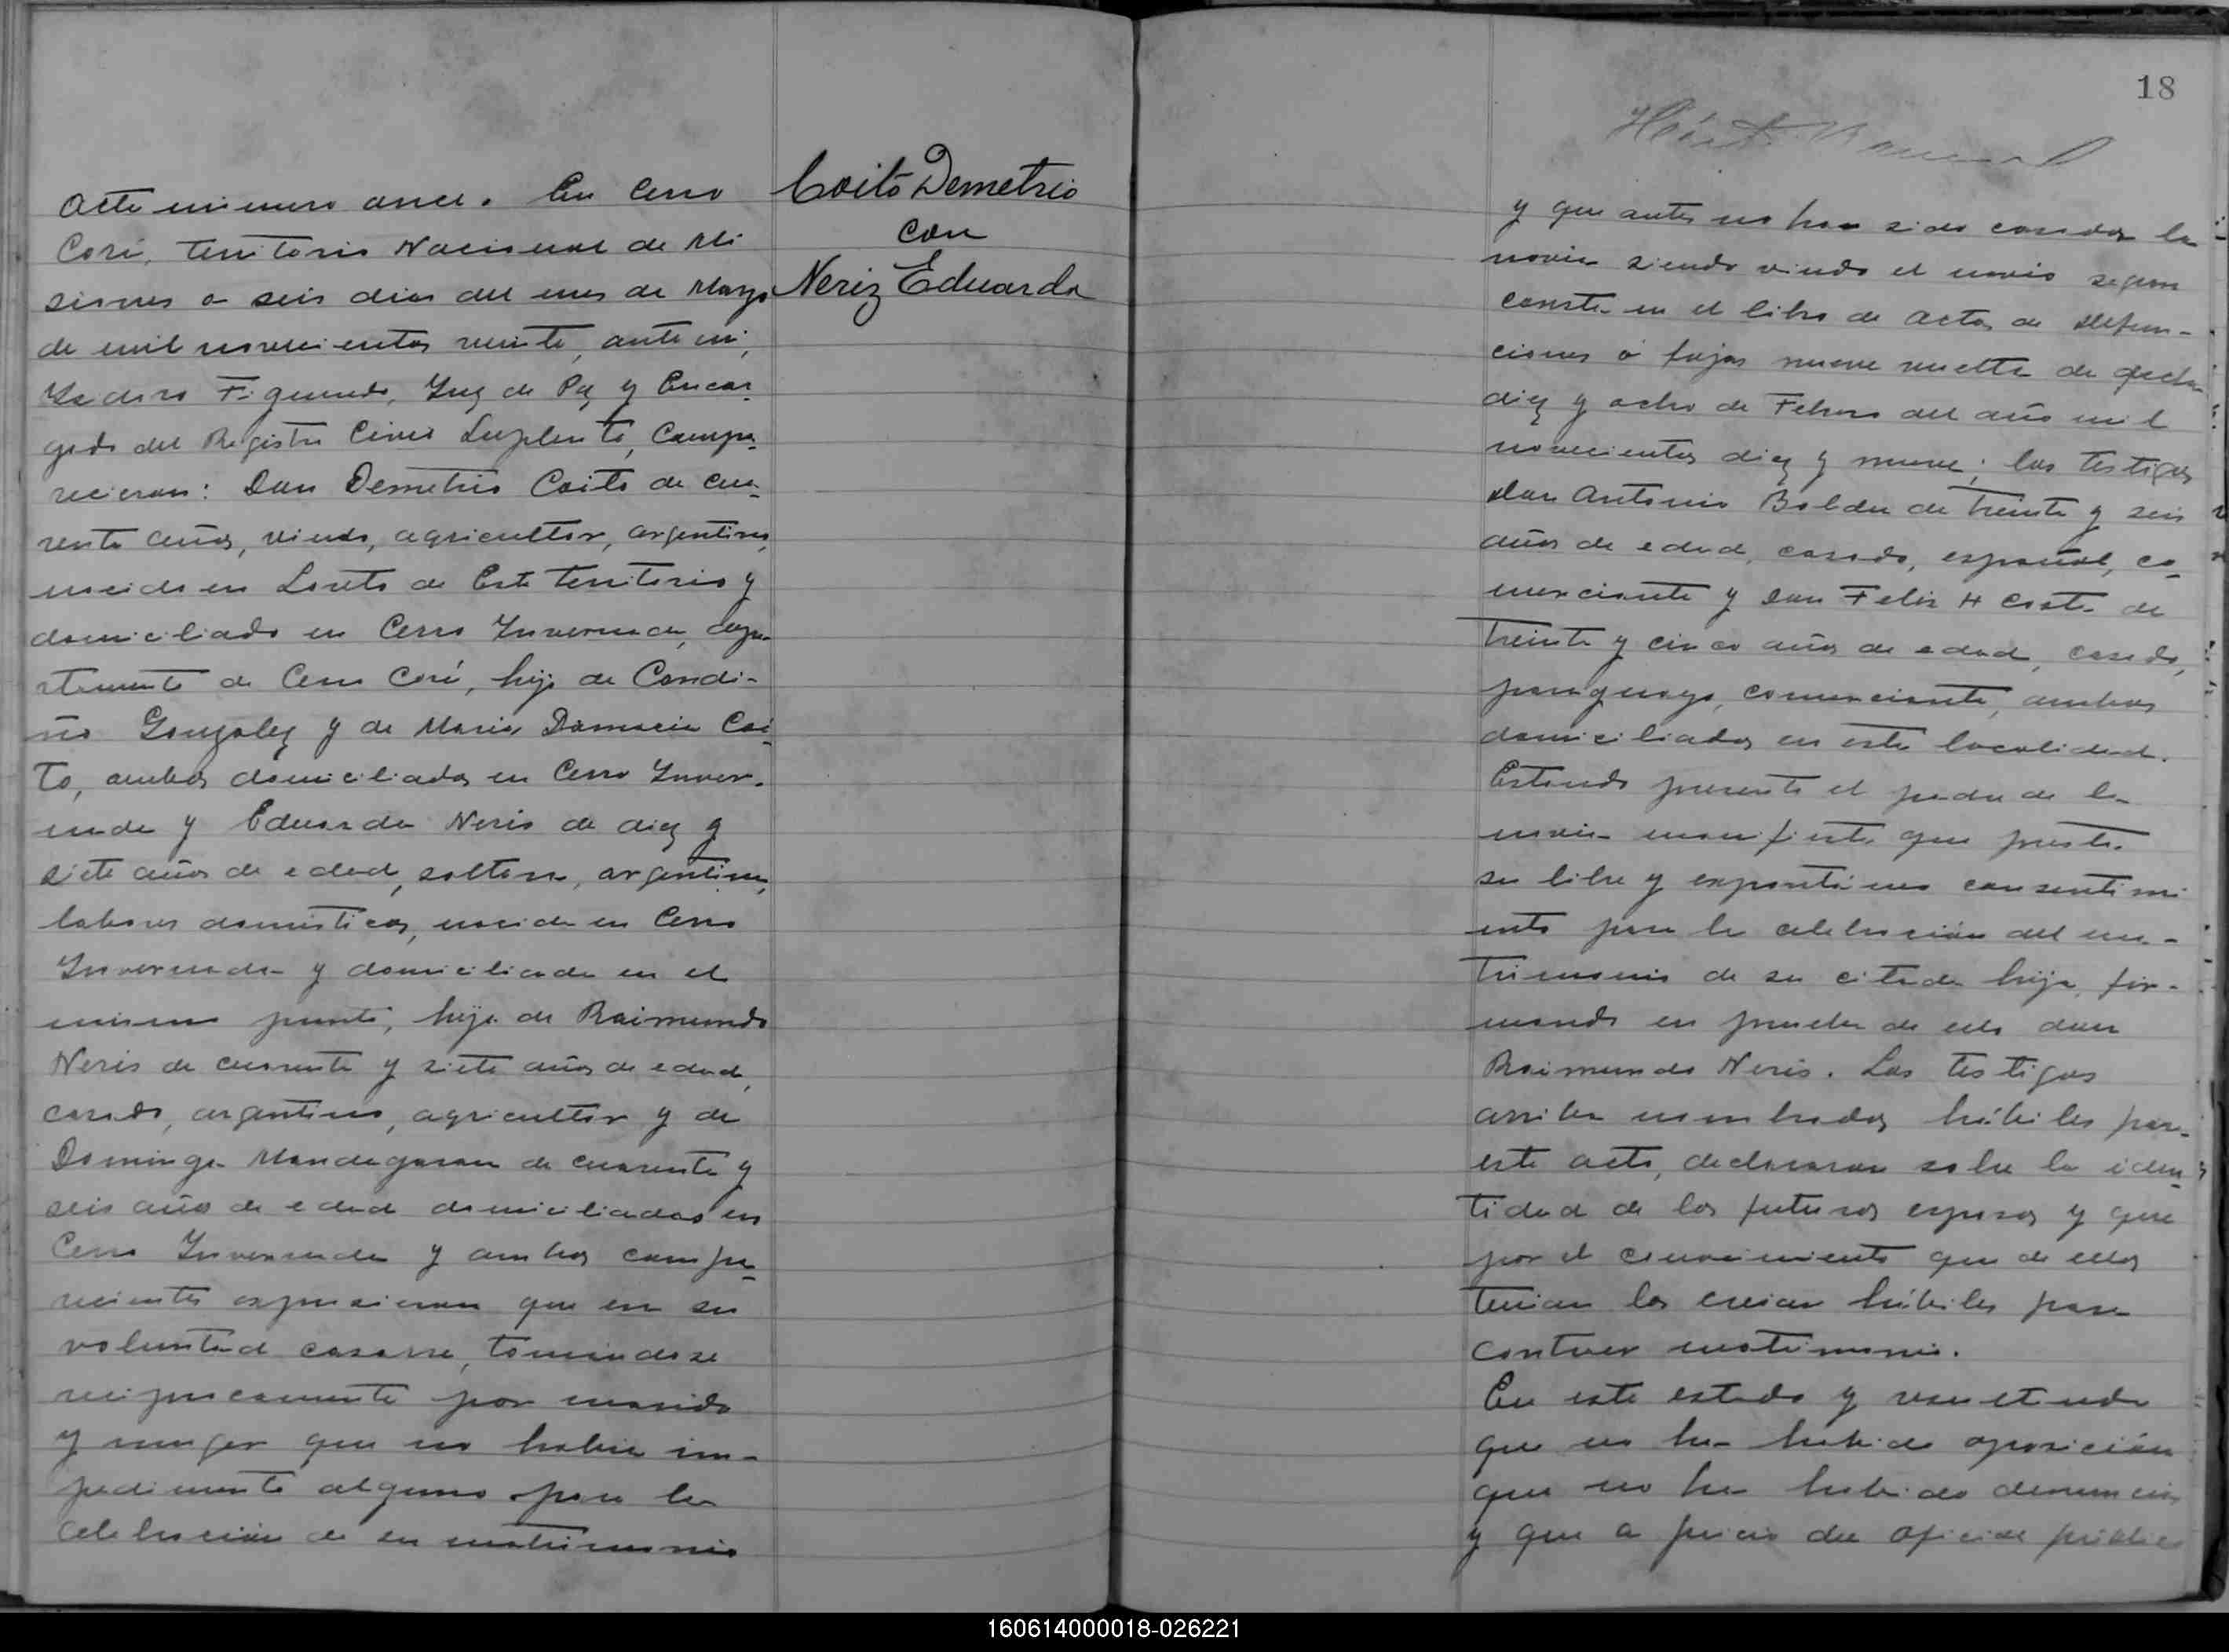 Acta número once. En Cerro
Corá, Territorio Nacional de Mi
siones a seis dias del mes de Mayo
de mil novecientos veinte, ante mi,
Isidoro Figueredo, Juez de Paz y Encar-
gado del Registro Civil Suplente, Compa-
recieron: Don Demetrio Coito de cua-
renta años, viudo, agricultor, argentino,
nacido en Loreto de Este Territorio y
domiciliado en Cerro Invernada, depa-
rtamento de Cerro Corá, hijo de Candi-
ño Gonzalez y de Maria Damacia Coi-
to, ambos domiciliados en Cerro Inver-
nada y Eduarda Neris de diez y
siete años de edad, soltera, argentina,
labores domesticas, nacida en Cerro
Invernada y domiciliada en el
mismo punto, hija de Raimundo
Neris de cuarenta y siete años de edad,
casado, argentino, agricultor y de
Dominga Mandagaran de cuarenta y
seis años de edad domiciliados en
Cerro Invernada y ambos compa-
recientes expusieron que era su
voluntad casarse, tomandose
reciprocamente por marido
y muger que no habia im-
pedimento alguno para la
celebracion de su matrimonio
Coito Demetrio
con
Neriz Eduarda
18
y que antes no han sido casados la
novia siendo viudo el novio segun
consta en el libro de actas de Defun-
ciones á fojas nueve vuelta de fecha
diez y ocho de Febrero del año mil
novecientos diez y nueve; los testigos
don Antonio Boldu de treinta y seis
años de edad, casado, español, co-
merciante y Don Felix H Costa de
treinta y cinco años de edad, casado,
paraguayo, comerciante, ambos
domiciliados en esta localidad.
Estando presente el padre de la
novia manifiesta que presta
su libre y expontáneo consentimi
ento para la celebración del ma-
trimonio de su citada hija, fir-
mando en prueba de ello don
Raimundo Neris. Los testigos
arriba nombrados hábiles para
este acto, declararon sobre la iden-
tidad de los futuros esposos y que
por el conocimiento que de ellos
tenian los creian hábiles para
contraer matrimonio.
En este estado y resultando
que no ha habido oposición
que no ha habido denuncia
y que a juicio del oficial público
160614000018-026221